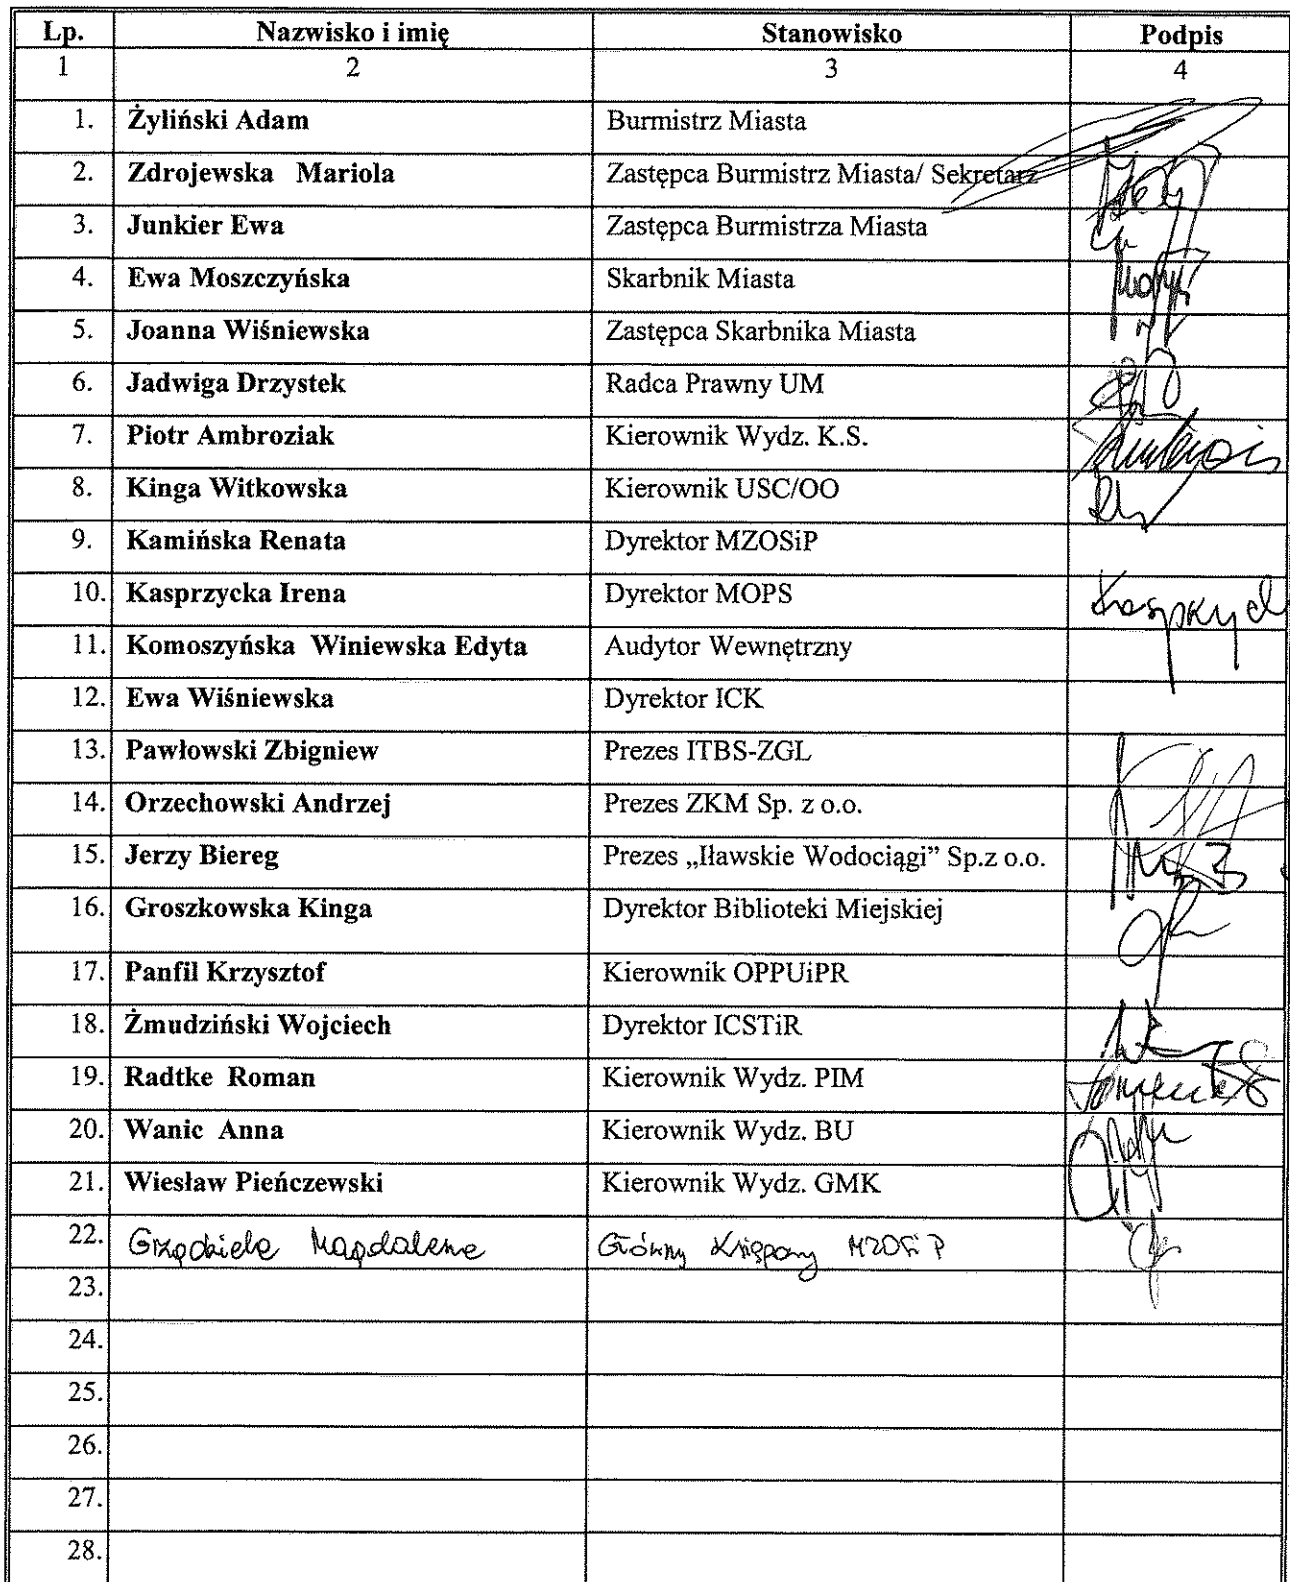 Lp. Nazwisko i imię Stanowisko Podpis
1 2 3 4
1. Żyliński Adam Burmistrz Miasta
2. Zdrojewska Mariola Zastępca Burmistrz Miasta/ Sekretarz
3. Junkier Ewa Zastępca Burmistrza Miasta
4. Ewa Moszczyńska Skarbnik Miasta
5. Joanna Wiśniewska Zastępca Skarbnika Miasta
6. Jadwiga Drzystek Radca Prawny UM
7. Piotr Ambroziak Kierownik Wydz. K.S.
8. Kinga Witkowska Kierownik USC/OO
9. Kamińska Renata Dyrektor MZOSiP
10. Kasprzycka Irena Dyrektor MOPS
11. Komoszyńska Winiewska Edyta Audytor Wewnętrzny
12. Ewa Wiśniewska Dyrektor ICK
13. Pawłowski Zbigniew Prezes ITBS-ZGL
14. Orzechowski Andrzej Prezes ZKM Sp. z o.o.
15. Jerzy Biereg Prezes „Iławskie Wodociągi” Sp.z o.o.
16. Groszkowska Kinga Dyrektor Biblioteki Miejskiej
17. Panfil Krzysztof Kierownik OPPUiPR
18. Żmudziński Wojciech Dyrektor ICSTiR
19. Radtke Roman Kierownik Wydz. PIM
20. Wanic Anna Kierownik Wydz. BU
21. Wiesław Pieńczewski Kierownik Wydz. GMK
22. Magdalena Główny Księgowy MZOSiP
23.
24.
25.
26.
27.
28.